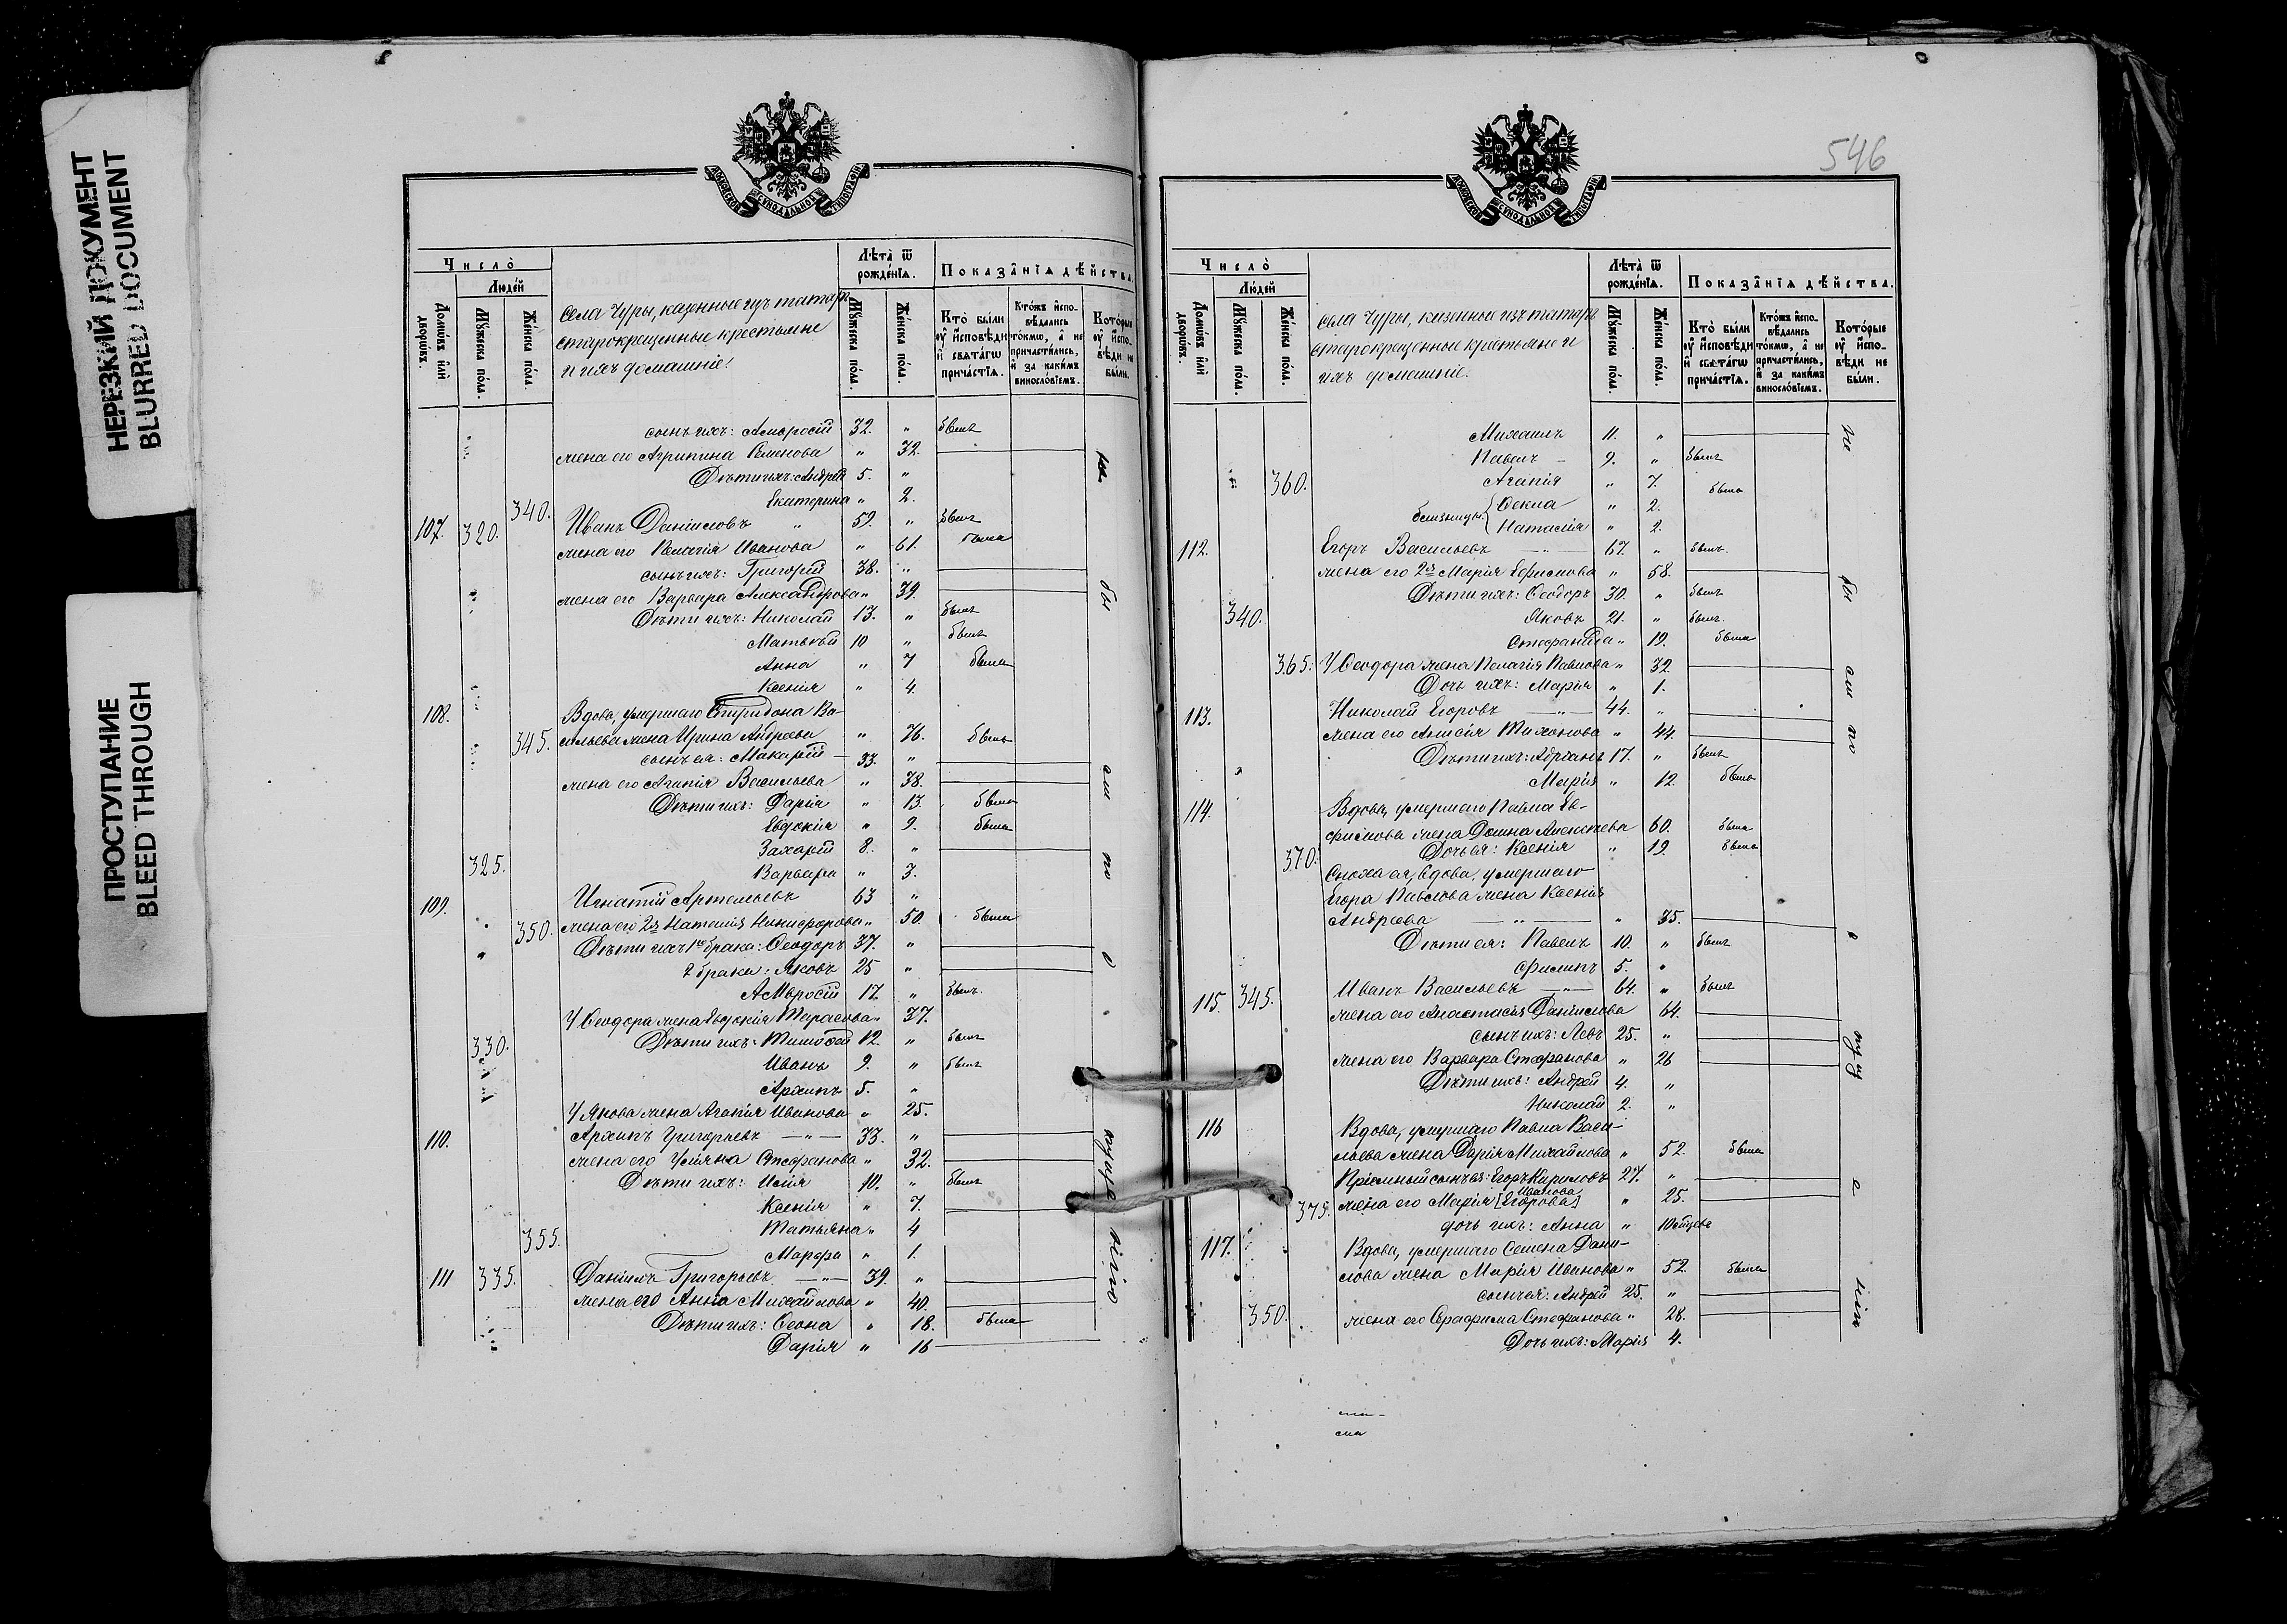 НЕРЕЗКИЙ ДОКУМЕНТ
BLURRED DOCUMENT
ПРОСТУПАНИЕ
BLEED THROUGH
МОСКОВСКОЙ СѴНОДАЛЬНОЙ ТИПОГРАФІИ
Число̀
Люде́й
Домѡ́въ и҆лѝ дворѡ́въ.
Мꙋ́жеска по́ла.
Же́нска по́ла.
Села Чуры, казенные изъ татаръ
старокрещенные крестьяне
и ихъ домашніе.
Лѣ́та ѿ рожде́нїѧ.
Мꙋ́жеска по́ла.
Же́нска по́ла.
Показа̑нїѧ дѣ́йства.
Кто̀ бы́ли ᲂу҆ и҆́сповѣди и҆ свѧта́гѡ прича́стїѧ.
Кто́жъ и҆спо-вѣ́дались то́кмѡ, а҆ не причасти́лись, и҆ за каки́мъ винослóвїемъ.
Кото́рые ᲂу҆ и҆́спо-вѣди не бы́ли.
сынъ ихъ: Амвросій 32. "
былъ
жена его Агрипина Семенова " 32.
Дѣти ихъ: Андрей 5. "
340. Екатерина " 2.
107. 320. Иванъ Даніиловъ " 59. " былъ
жена его Пелагія Иванова " 61. была
сынъ ихъ: Григорій 38. "
жена его Варвара Александрова " 39.
Дѣти ихъ: Николай 13. " былъ
Матѳѣй 10 " былъ
Анна " 7 была
Ксенія " 4.
108. Вдова, умершаго Спиридона Ва-
345. сильева жена Ирина Андреева " 76. была
сынъ ея: Макарій 33. "
жена его Агапія Васильева " 38.
Дѣти ихъ: Дарія " 13. была
Евдокія " 9. была
Захарій 8. "
325. Варвара " 3.
109. Игнатій Артемьевъ 63 "
350. жена его 2я Наталія Никифорова " 50. была
Дѣти ихъ 1го брака: Ѳеодоръ 37. "
2 брака: Яковъ 25 "
Амвросій 17. " былъ.
У Ѳеодора жена Евдокія Тарасова " 37.
330. Дѣти ихъ: Тимоѳей 12. " былъ
Иванъ 9. " былъ
Архипъ 5. "
У Якова жена Агапія Иванова " 25.
110. Архипъ Григорьевъ — " — 33. "
жена его Уліяна Стефанова " 32.
Дѣти ихъ: Илія 10. " былъ
Ксенія " 7.
Татьяна " 4
355. Марфа " 1.
111 335. Даніилъ Григорьевъ — " — 39. "
жена его Анна Михайлова " 40.
Дѣти ихъ: Ѳеона " 18. была
Дарія " 16
546
МОСКОВСКОЙ СѴНОДАЛЬНОЙ ТИПОГРАФІИ
Число̀
Люде́й
Домѡ́въ и҆лѝ дворѡ́въ.
Мꙋ́жеска по́ла.
Же́нска по́ла.
Села Чуры, казенные изъ татаръ
старокрещенные крестьяне и
ихъ домашніе.
Лѣ́та ѿ рожде́нїѧ.
Мꙋ́жеска по́ла.
Же́нска по́ла.
Показа̑нїѧ дѣ́йства.
Кто̀ бы́ли ᲂу҆ и҆́сповѣди и҆ свѧта́гѡ прича́стїѧ.
Кто́жъ и҆спо-вѣ́дались то́кмѡ, а҆ не причасти́лись, и҆ за каки́мъ винослóвїемъ.
Кото́рые ᲂу҆ и҆спо-вѣди не бы́ли.
Михаилъ 11. "
Павелъ — 9. " былъ
360. Агапія " 7. была
близнецы { Ѳекла " 2.
Наталія " 2.
112. Егоръ Васильевъ — " — 67. " былъ.
жена его 2я Марія Ефимова " 58.
Дѣти ихъ: Ѳеодоръ 30. " былъ
340. Яковъ 21. " былъ.
Стефанида " 19. была
365. У Ѳеодора жена Пелагія Павлова " 32.
Дочь ихъ: Марія " 1.
113. Николай Егоровъ — " — 44. "
жена его Анисія Тихонова " 44.
Дѣти ихъ: Адріанъ 17. " былъ
Марія " 12. была
114. Вдова, умершаго Павла Еф-
фимова жена Домна Алексѣева 60. была
370. Дочь ея: Ксенія " 19. была
Сноха ея, вдова, умершаго
Егора Павлова жена Ксенія
Андреева — " — " 35.
Дѣти ея: Павелъ 10. " былъ
Филипъ 5. "
115. 345. Иванъ Васильевъ — " — 64. " былъ
жена его Анастасія Даніилова 64.
сынъ ихъ: Левъ 25. "
жена его Варвара Стефанова " 26
Дѣти ихъ: Андрей 4. "
Николай 2. "
116 Вдова, умершаго Павла Васи-
льева жена Дарія Михайлова " 52. была
Пріемный сынъ ея: Егоръ Кириловъ 27. "
Иванова
375. жена его Марія [Егорова] " 25.
дочь ихъ: Анна "
117. Вдова, умершаго Семена Дани-
лова жена Марія Иванова " 52. была
сынъ ея: Андрей 25. "
350. жена его Серафима Стефанова " 28.
Дочь ихъ: Марія 4.